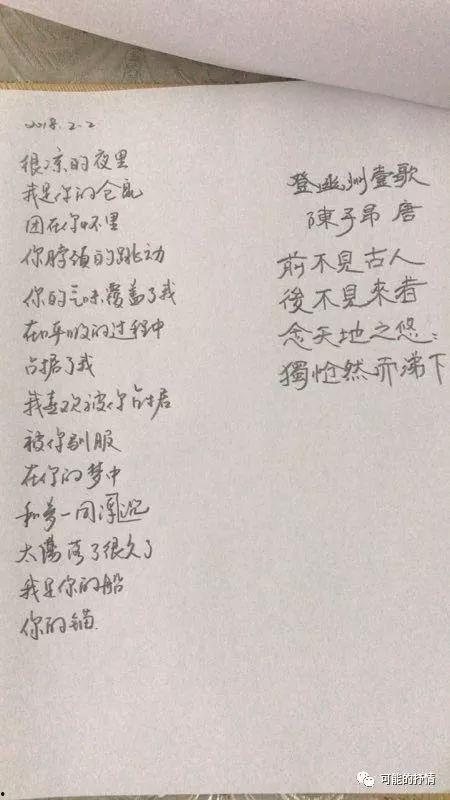 2018.2.2
很凉的夜里
我是你的仓鼠
团在你怀里
你脖颈的跳动
你的气味覆盖了我
在呼吸的过程中
占据了我
我喜欢被你占据
被你驯服
在你的梦中
和梦一同浮沉
太陽落了很久了
我是你的船
你的锚.
登幽州臺歌
陳子昂 唐
前不見古人
後不見來者
念天地之悠:
獨怆然而涕下
可能的抒情